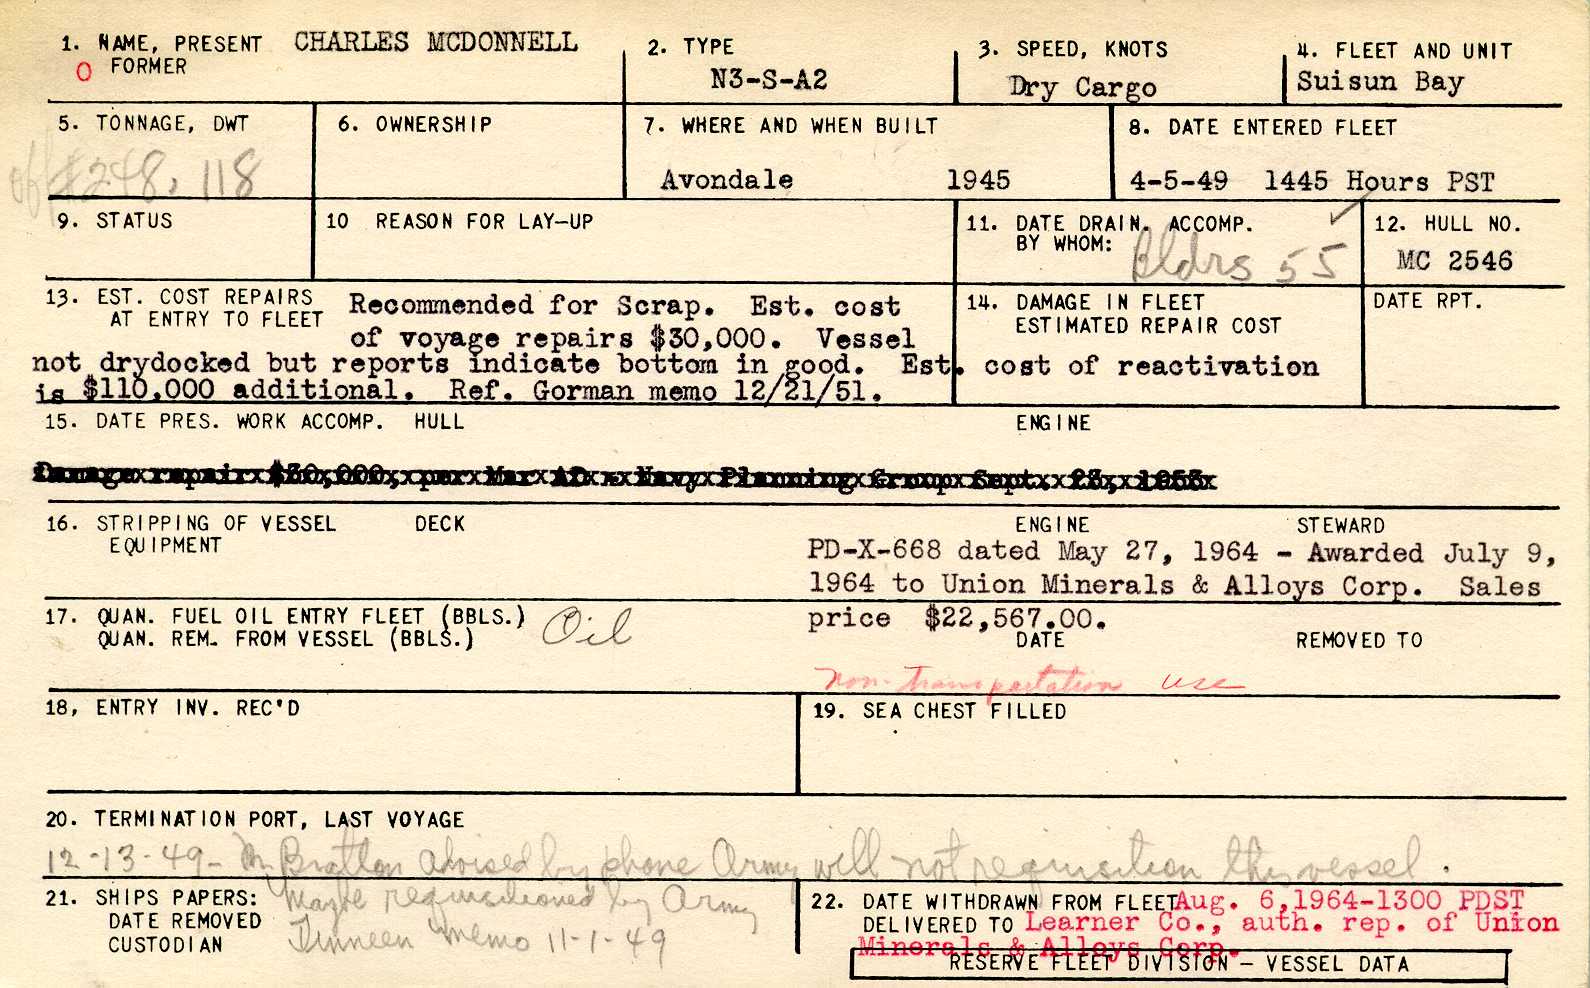 1. NAME, PRESENT CHARLES MCDONNELL
O FORMER
2. TYPE
N3-S-A2
3. SPEED, KNOTS
Dry Cargo
4. FLEET AND UNIT
Suisun Bay
5. TONNAGE, DWT
off #248, 118
6. OWNERSHIP
7. WHERE AND WHEN BUILT
Avondale 1945
8. DATE ENTERED FLEET
4-5-49 1445 Hours PST
9. STATUS
10 REASON FOR LAY-UP
11. DATE DRAIN. ACCOMP.
BY WHOM: Bldrs 55 ✓
12. HULL NO.
MC 2546
13. EST. COST REPAIRS
AT ENTRY TO FLEET
Recommended for Scrap. Est. cost
of voyage repairs $30,000. Vessel
not drydocked but reports indicate bottom in good. Est. cost of reactivation
is $110,000 additional. Ref. Gorman memo 12/21/51.
14. DAMAGE IN FLEET
ESTIMATED REPAIR COST
DATE RPT.
15. DATE PRES. WORK ACCOMP. HULL ENGINE
Damage repair $30,000, per Mar AD - Navy Planning Group Sept. 23, 1953
16. STRIPPING OF VESSEL DECK ENGINE STEWARD
EQUIPMENT
PD-X-668 dated May 27, 1964 - Awarded July 9,
1964 to Union Minerals & Alloys Corp. Sales
price $22,567.00.
17. QUAN. FUEL OIL ENTRY FLEET (BBLS.) Oil
QUAN. REM. FROM VESSEL (BBLS.) DATE REMOVED TO
non-transportation use
18, ENTRY INV. REC'D
19. SEA CHEST FILLED
20. TERMINATION PORT, LAST VOYAGE
12-13-49- Mr Bratton advised by phone Army will not requisition this vessel.
21. SHIPS PAPERS:
DATE REMOVED
CUSTODIAN
Maybe requisitioned by Army
Finneen memo 11-1-49
22. DATE WITHDRAWN FROM FLEET Aug. 6, 1964-1300 PDST
DELIVERED TO Learner Co., auth. rep. of Union
Minerals & Alloys Corp.
RESERVE FLEET DIVISION - VESSEL DATA